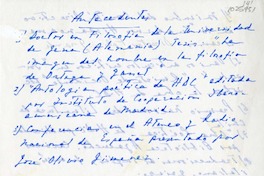 Antecedentes
1) Doctor en Filosofía de la Universidad
de Jena (Alemania) Tesis: La
imagen del hombre en la filosofía
de Ortega y Gasset
2) "Antología poética de HDC" editada
por Instituto de Cooperación Ibero
americana de Madrid
3) Conferencias en el Ateneo y Radio
Nacional de España presentado por
José Olivio Jiménez